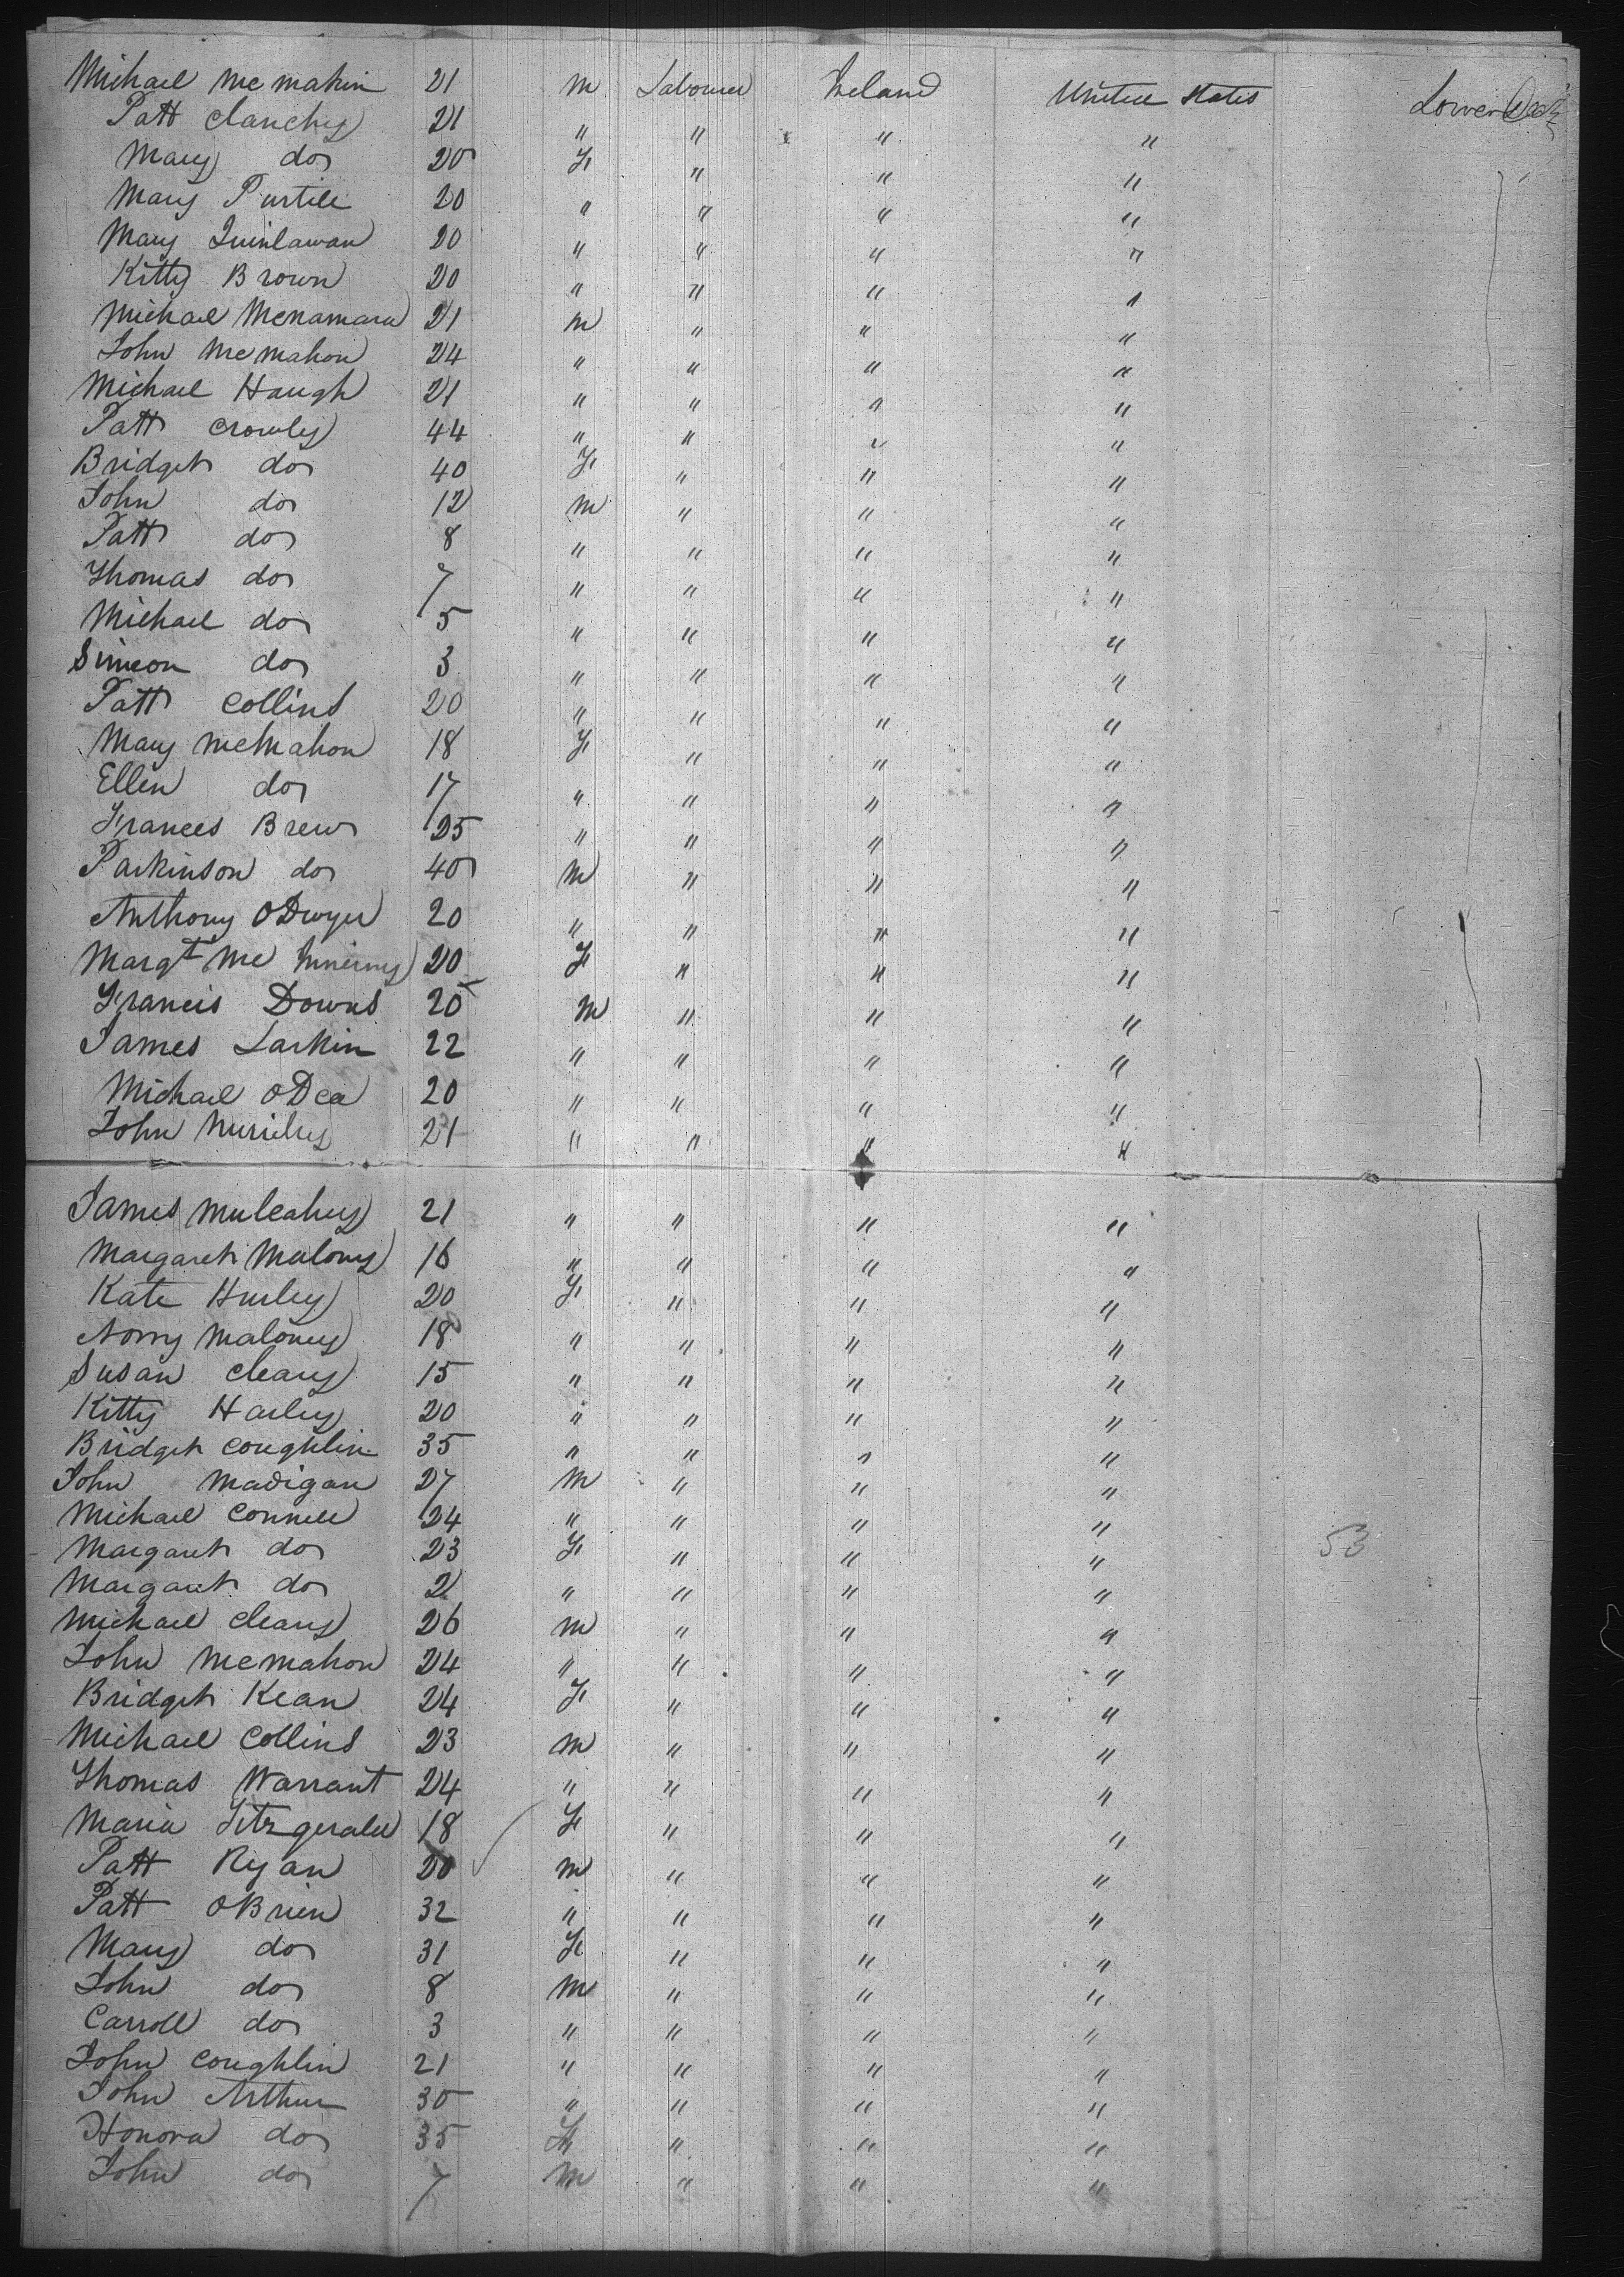 Michael McMahin 21 m Labourer Ireland United States Lower Deck
Patt Clanchy 21 " " " "
Mary do 20 F " " "
Mary Purtill 20 " " " "
Mary Quinlawan 20 " " " "
Kitty Brown 20 " " " "
Michael McNamara 21 m " " "
John McMahon 24 " " " "
Michael Haugh 21 " " " "
Patt Crowley 44 " " " "
Bridget do 40 F " " "
John do 12 m " " "
Patt do 8 " " " "
Thomas do 7 " " " "
Michael do 5 " " " "
Simeon do 3 " " " "
Patt Collins 20 " " " "
Mary McMahon 18 F " " "
Ellen do 17 " " " "
Frances Brew 25 " " " "
Parkinson do 40 m " " "
Anthony ODwyer 20 " " " "
Margt Mc 20 F " " "
Francis Downs 20 m " " "
James Larkin 22 " " " "
Michael ODea 20 " " " "
John 21 " " " "
James Mulcahy 21 " " " "
Margaret Malony 16 " " " "
Kate Hurley 20 F " " "
Norry Maloney 18 " " " "
Susan Cleary 15 " " " "
Kitty Harley 20 " " " "
Bridget Coughlin 35 " " " "
John Madigan 27 m " " "
Michael Connell 24 " " " "
Margaret do 23 F " " " 53
Margaret do 2 " " " "
Michael Cleary 26 m " " "
John McMahon 24 " " " "
Bridget Kean 24 F " " "
Michael Collins 23 m " " "
Thomas Warrant 24 " " " "
Maria Fitzgerald 18 F " " "
Patt Ryan 20 m " " "
Patt OBrien 32 " " " "
Mary do 31 F " " "
John do 8 m " " "
Carroll do 3 " " " "
John Coughlin 21 " " " "
John Arthur 30 " " " "
Honora do 35 F " " "
John do 7 m " " "